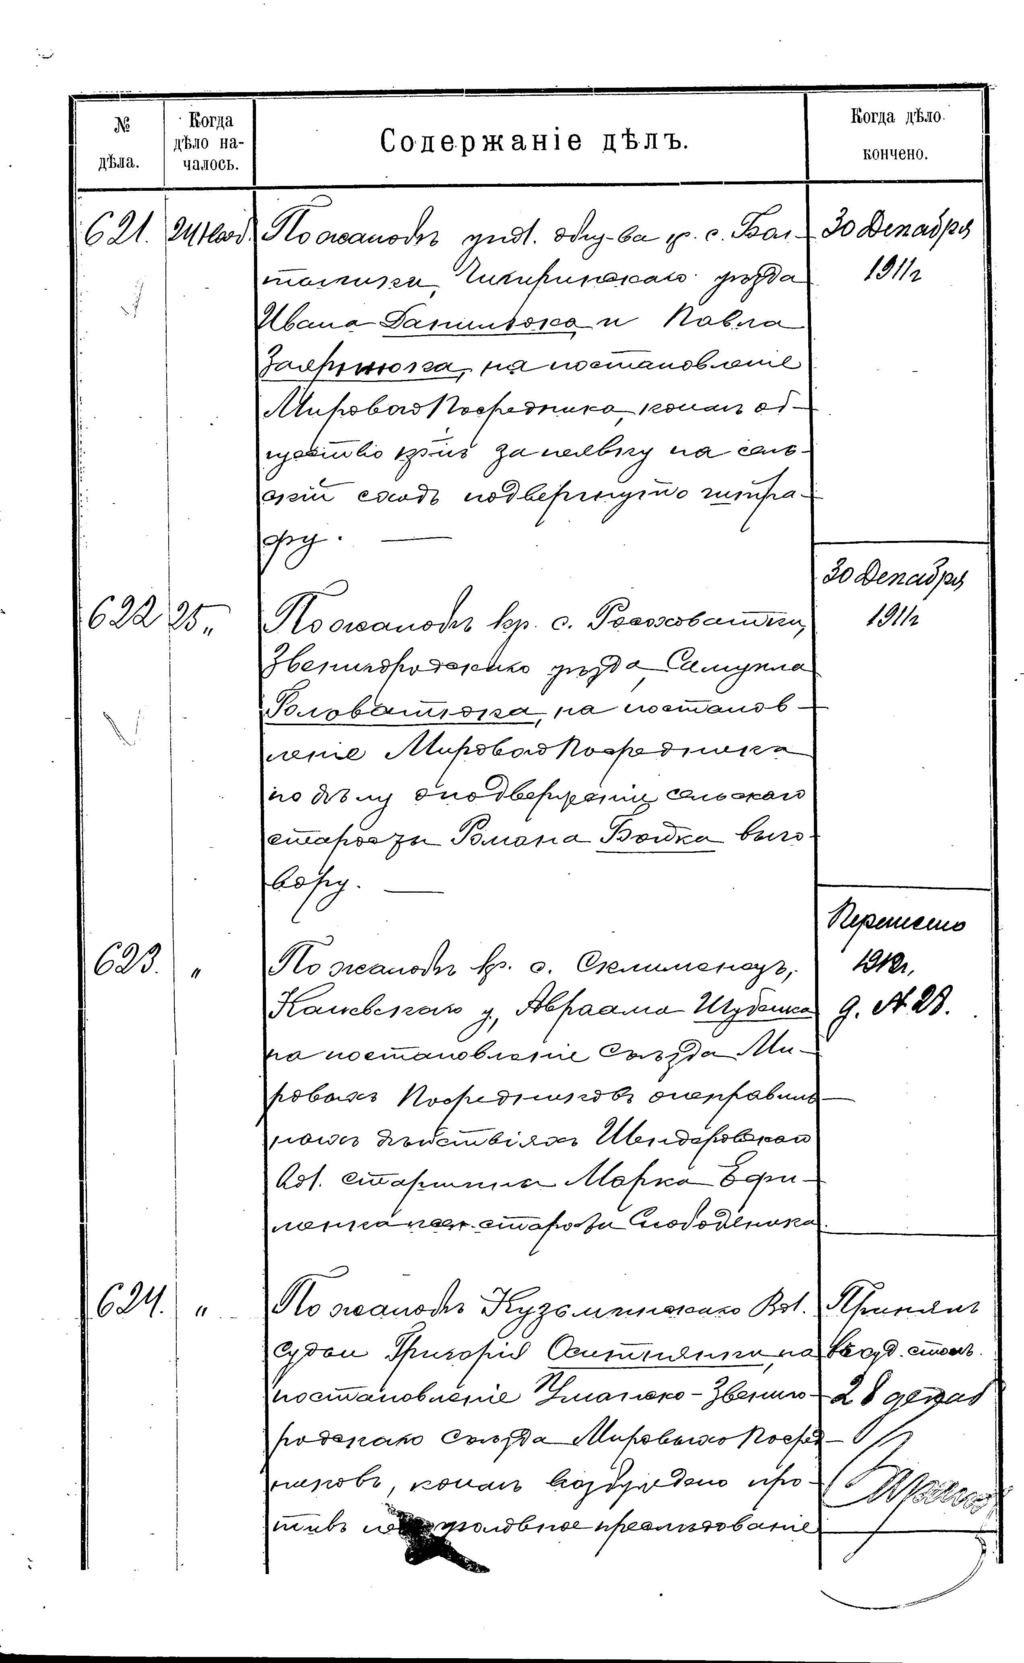 № дѣла.
Когда дѣло началось.
Содержаніе дѣлъ.
Когда дѣло кончено.
621. 24 Нояб.
По жалобѣ упол. общ-ва кр. с. Бол-
тышки, Чигиринскаго уѣзда
Ивана Данилюка и Павла
Заярнюка, на постановленіе
Мирового Посредника, коимъ об-
щество крт-нъ за неявку на сель-
скій сходъ подвергнуто штра-
фу. —
30 Декабря
1911г
622 25 „
По жалобѣ кр. с. Рыжановки,
Звенигородскаго уѣзда Самуила
Головатюка, на постанов-
леніе Мирового Посредника
по дѣлу о подверженіи сельскаго
старосты Романа Бойка выго-
вору. —
30 Декабря
1911г
623. „
По жалобѣ кр. с. Склименецъ,
Каневскаго у., Авраама Шубенка
на постановленіе Съѣзда Ми-
ровыхъ Посредниковъ о неправиль-
ныхъ дѣйствіяхъ Шендеровскаго
Вол. старшины Марка Ефи-
менка и сел. старосты Слободеника.
Перенесено
1912г,
д. № 28.
624. „
По жалобѣ Кузьминскаго Вол.
судьи Григорія Оситнянки, на
постановленіе Уманско-Звениго-
родскаго Съѣзда Мировыхъ Посред-
никовъ, коимъ возбуждено про-
тивъ него уголовное преслѣдованіе
Принялъ
въ суд. столъ.
28 декаб